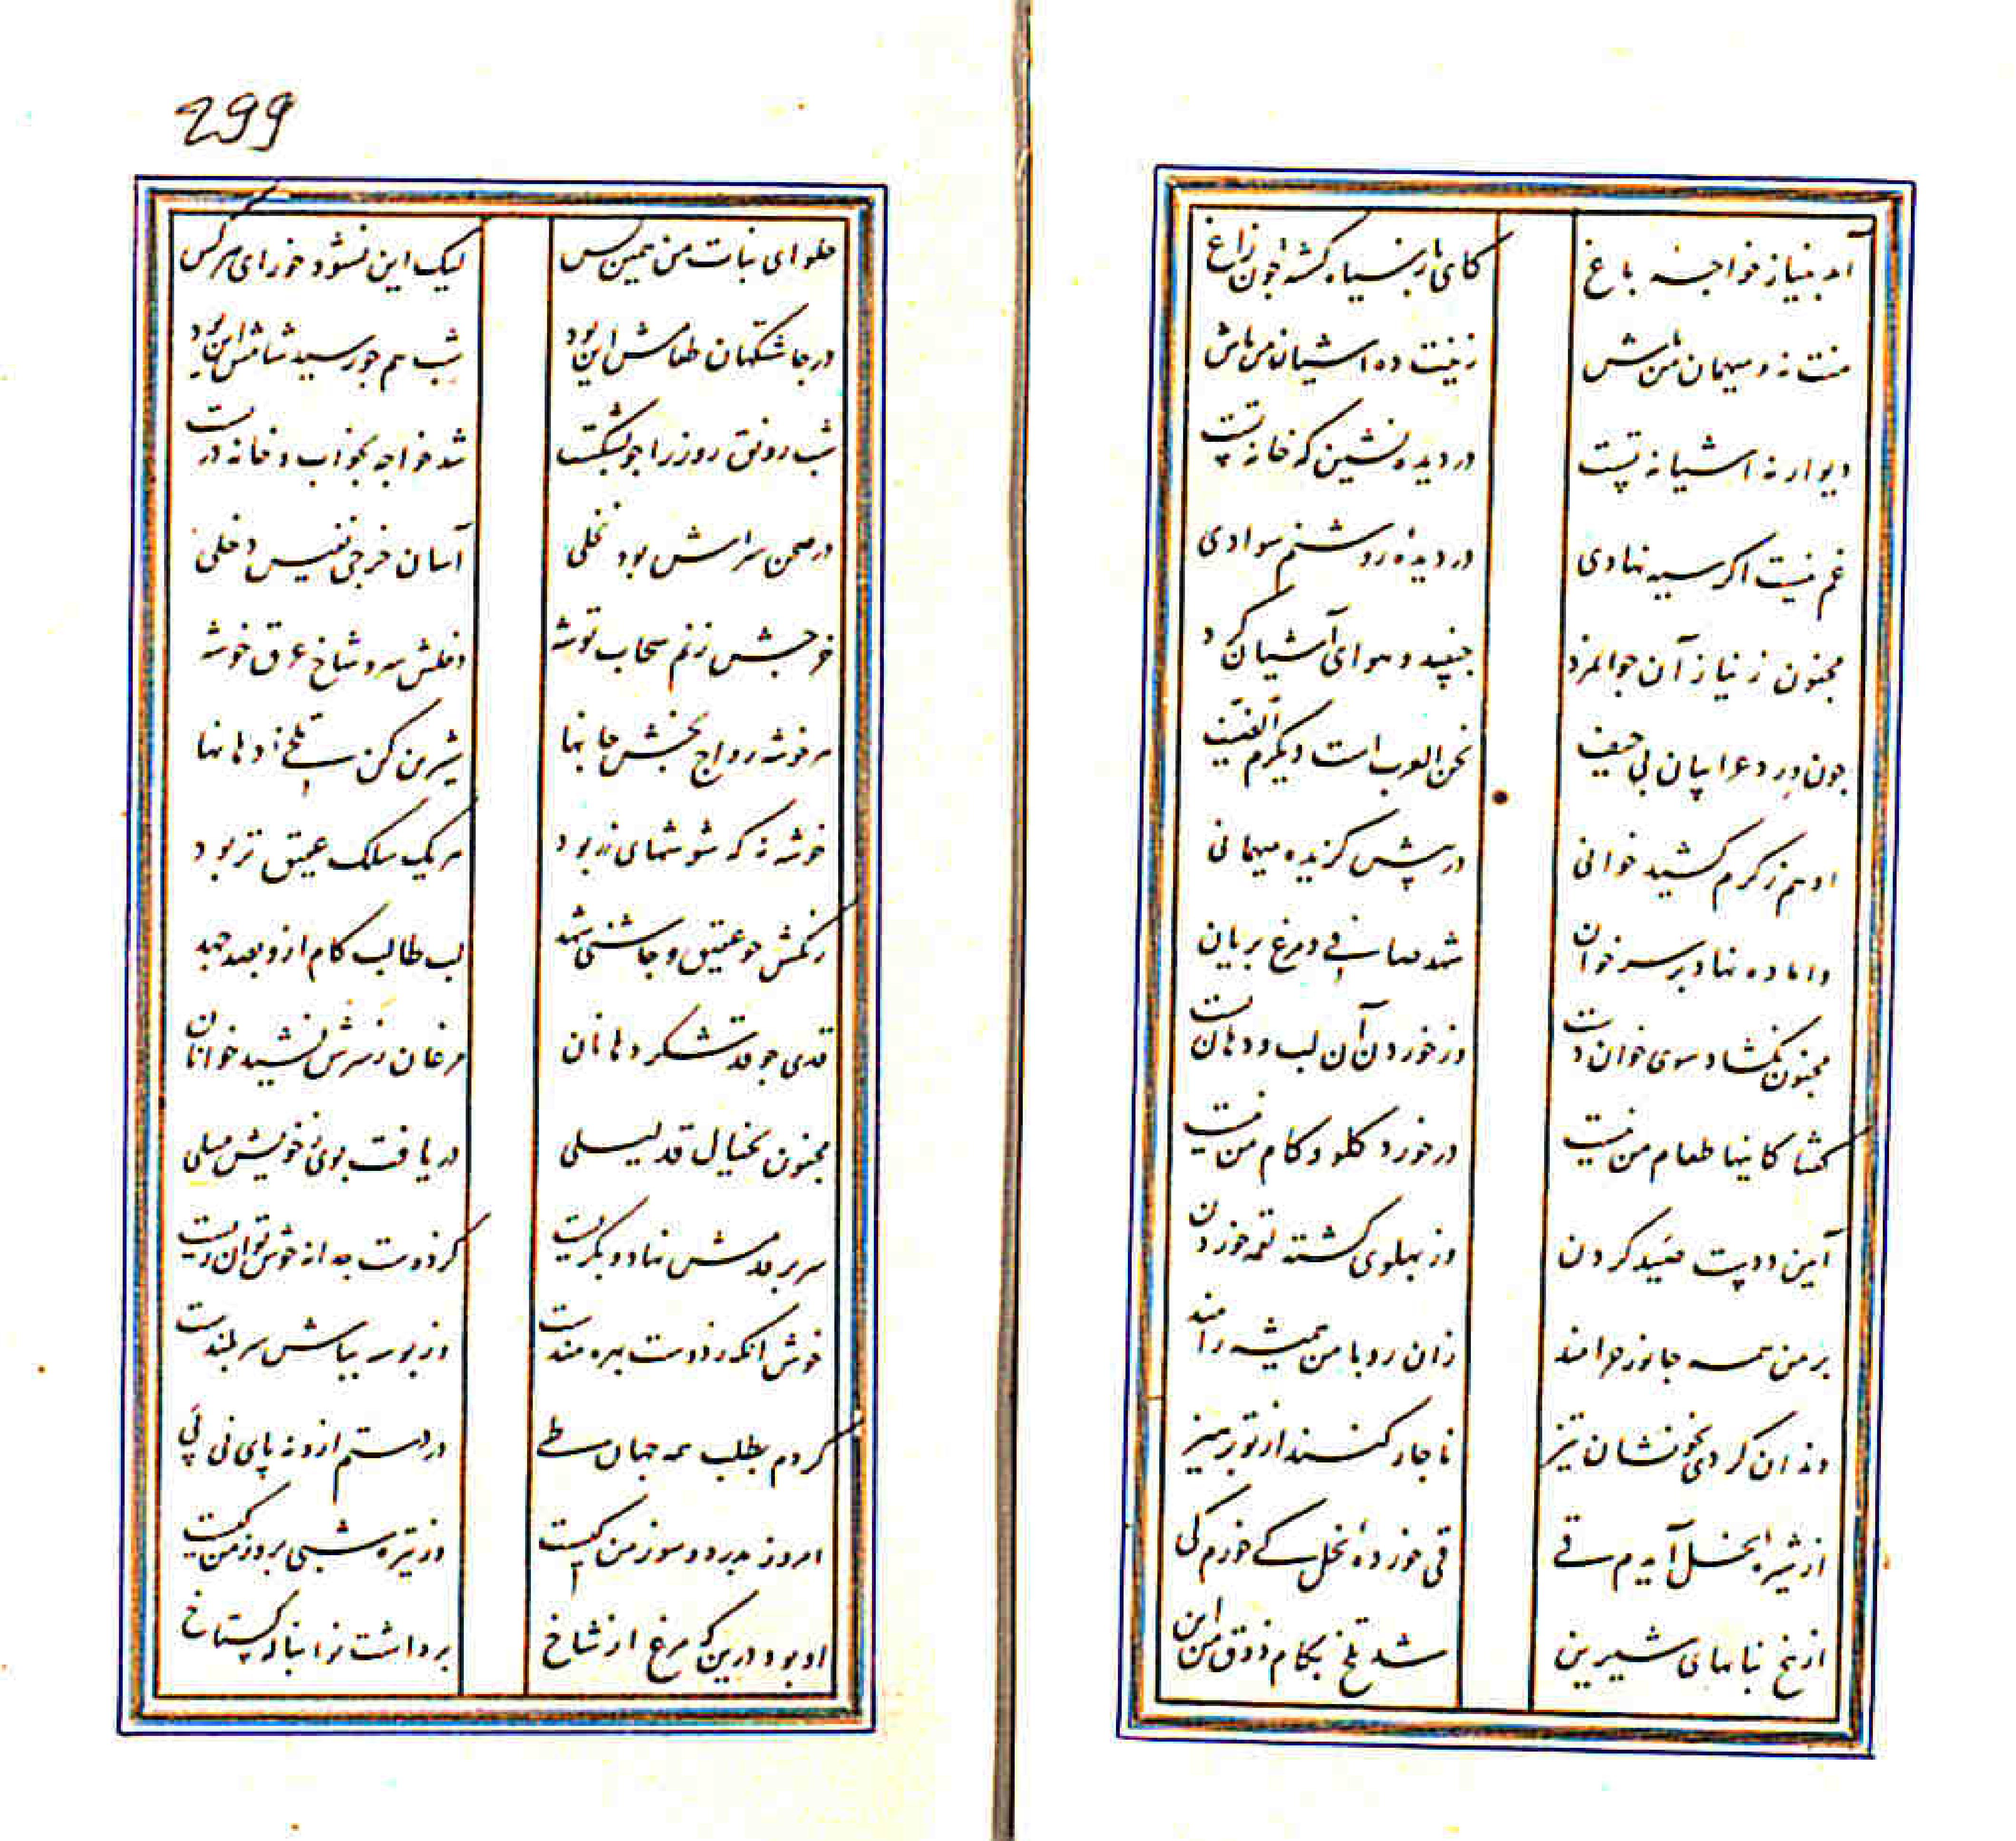 آمد بنیاز خواجهٔ باغ
کای باز سیاه گشته چون زاغ
منت نه و میهمان من باش
زینت ده آشیان من باش
دیوار نه آشیانه تست
در دیده نشین که خانه تست
غم نیست اگر سیه نهادی
در دیده روشنم سوادی
مجنون ز نیاز آن جوانمرد
جنبید و هوای آشیان کرد
چون در عرابیان بی حیف
نحن العرب است و نکرم الضیف
او هم ز کرم کشید خوانی
در پیش گزیده میهمانی
و اماده نهاد بر سر خوان
شهد صافی و مرغ بریان
مجنون نگشاد سوی خوان دست
وز خوردن آن لب و دهان بست
گفتا کاینها طعام من نیست
در خورد گلو و کام من نیست
آیین ددیست صید کردن
وز پهلوی کشته لقمه خوردن
بر من همه جانور حرامند
زان رو با من همیشه رامند
دندان کردی بخونشان تیز
ناچار کنند از تو پرهیز
از شیرهٔ نحل آیدم قی
قی خوردهٔ نحل کی خورم کی
از بیخ نباتهای شیرین
شد تلخ بکام ذوق من این
299
حلوای نبات من همین بس
لیک این نشود خورای هر کس
در چاشتگهان طعامش این بود
شب هم چو رسید شامش این بود
شب رونق روز را چو بشکست
شد خواجه بخواب و خانه در بست
در صحن سرایش بود نخلی
آسان خرجی نفیس دخلی
خرجش ز نم سحاب توشه
دخلش سر و شاخ غرق خوشه
هر خوشه رواج بخش جانها
شیرین کن تلخی از دهانها
خوشه نه که شوشهای زر بود
هر یک سلک عقیق تر بود
رنگش چو عقیق و چاشنی شهد
لب طالب کام ازو بصد جهد
قدی چو قد شکر دهانان
مرغان ز سرش نشید خوانان
مجنون بخیال قد لیلی
دریافت بسوی خویش میلی
سر بر قدمش نهاد و بگریست
کز دوست جدا نه خوش توان زیست
خوش آنکه ز دوست بهره مندست
وز بوسه پیاش سر بلندست
کردم بطلب همه جهان طی
در دستم ازو نه پای نی پی
امروز بدرد و سوز من کیست
وز تیره شبی بروز من کیست
او بود درین که مرغ از شاخ
برداشت نوا بناله گستاخ